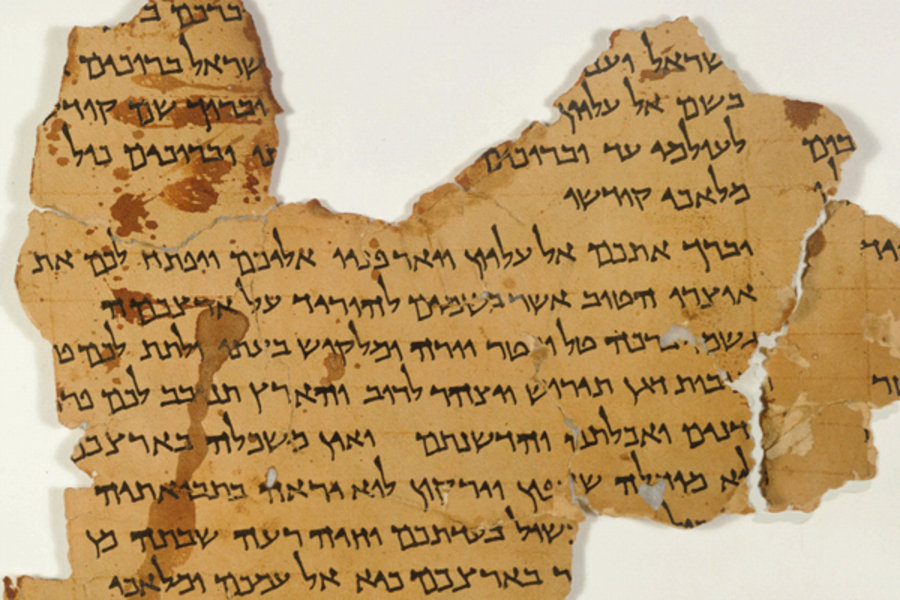 ברכם ב
שראל וענ שראל ברוכים
בשם אל עליון וברוך שם קודש
לעולמי עד וברוכים תו וברוכים כול
מלאכי קודשו
יברך אתכם אל עליון ויאר פניו אליכם ויפתח לכם את
אוצרו הטוב אשר בשמים להוריד על ארצכמה
גשמי ברכה טל ומטר יורה ומלקוש בעתו ולתת לכם
נובות דגן תירוש ויצהר לרוב והארץ תנובב לכם פר
דנים ואכלתם והדשנתם ואין משכלה בארצכם
לוא מוחלה שדפון וירקון לוא יראה בתבואתיה
שול בעדתכם וחיה רעה שבתה מן
ר בארצכם כיא אל עמכם ומלאכי